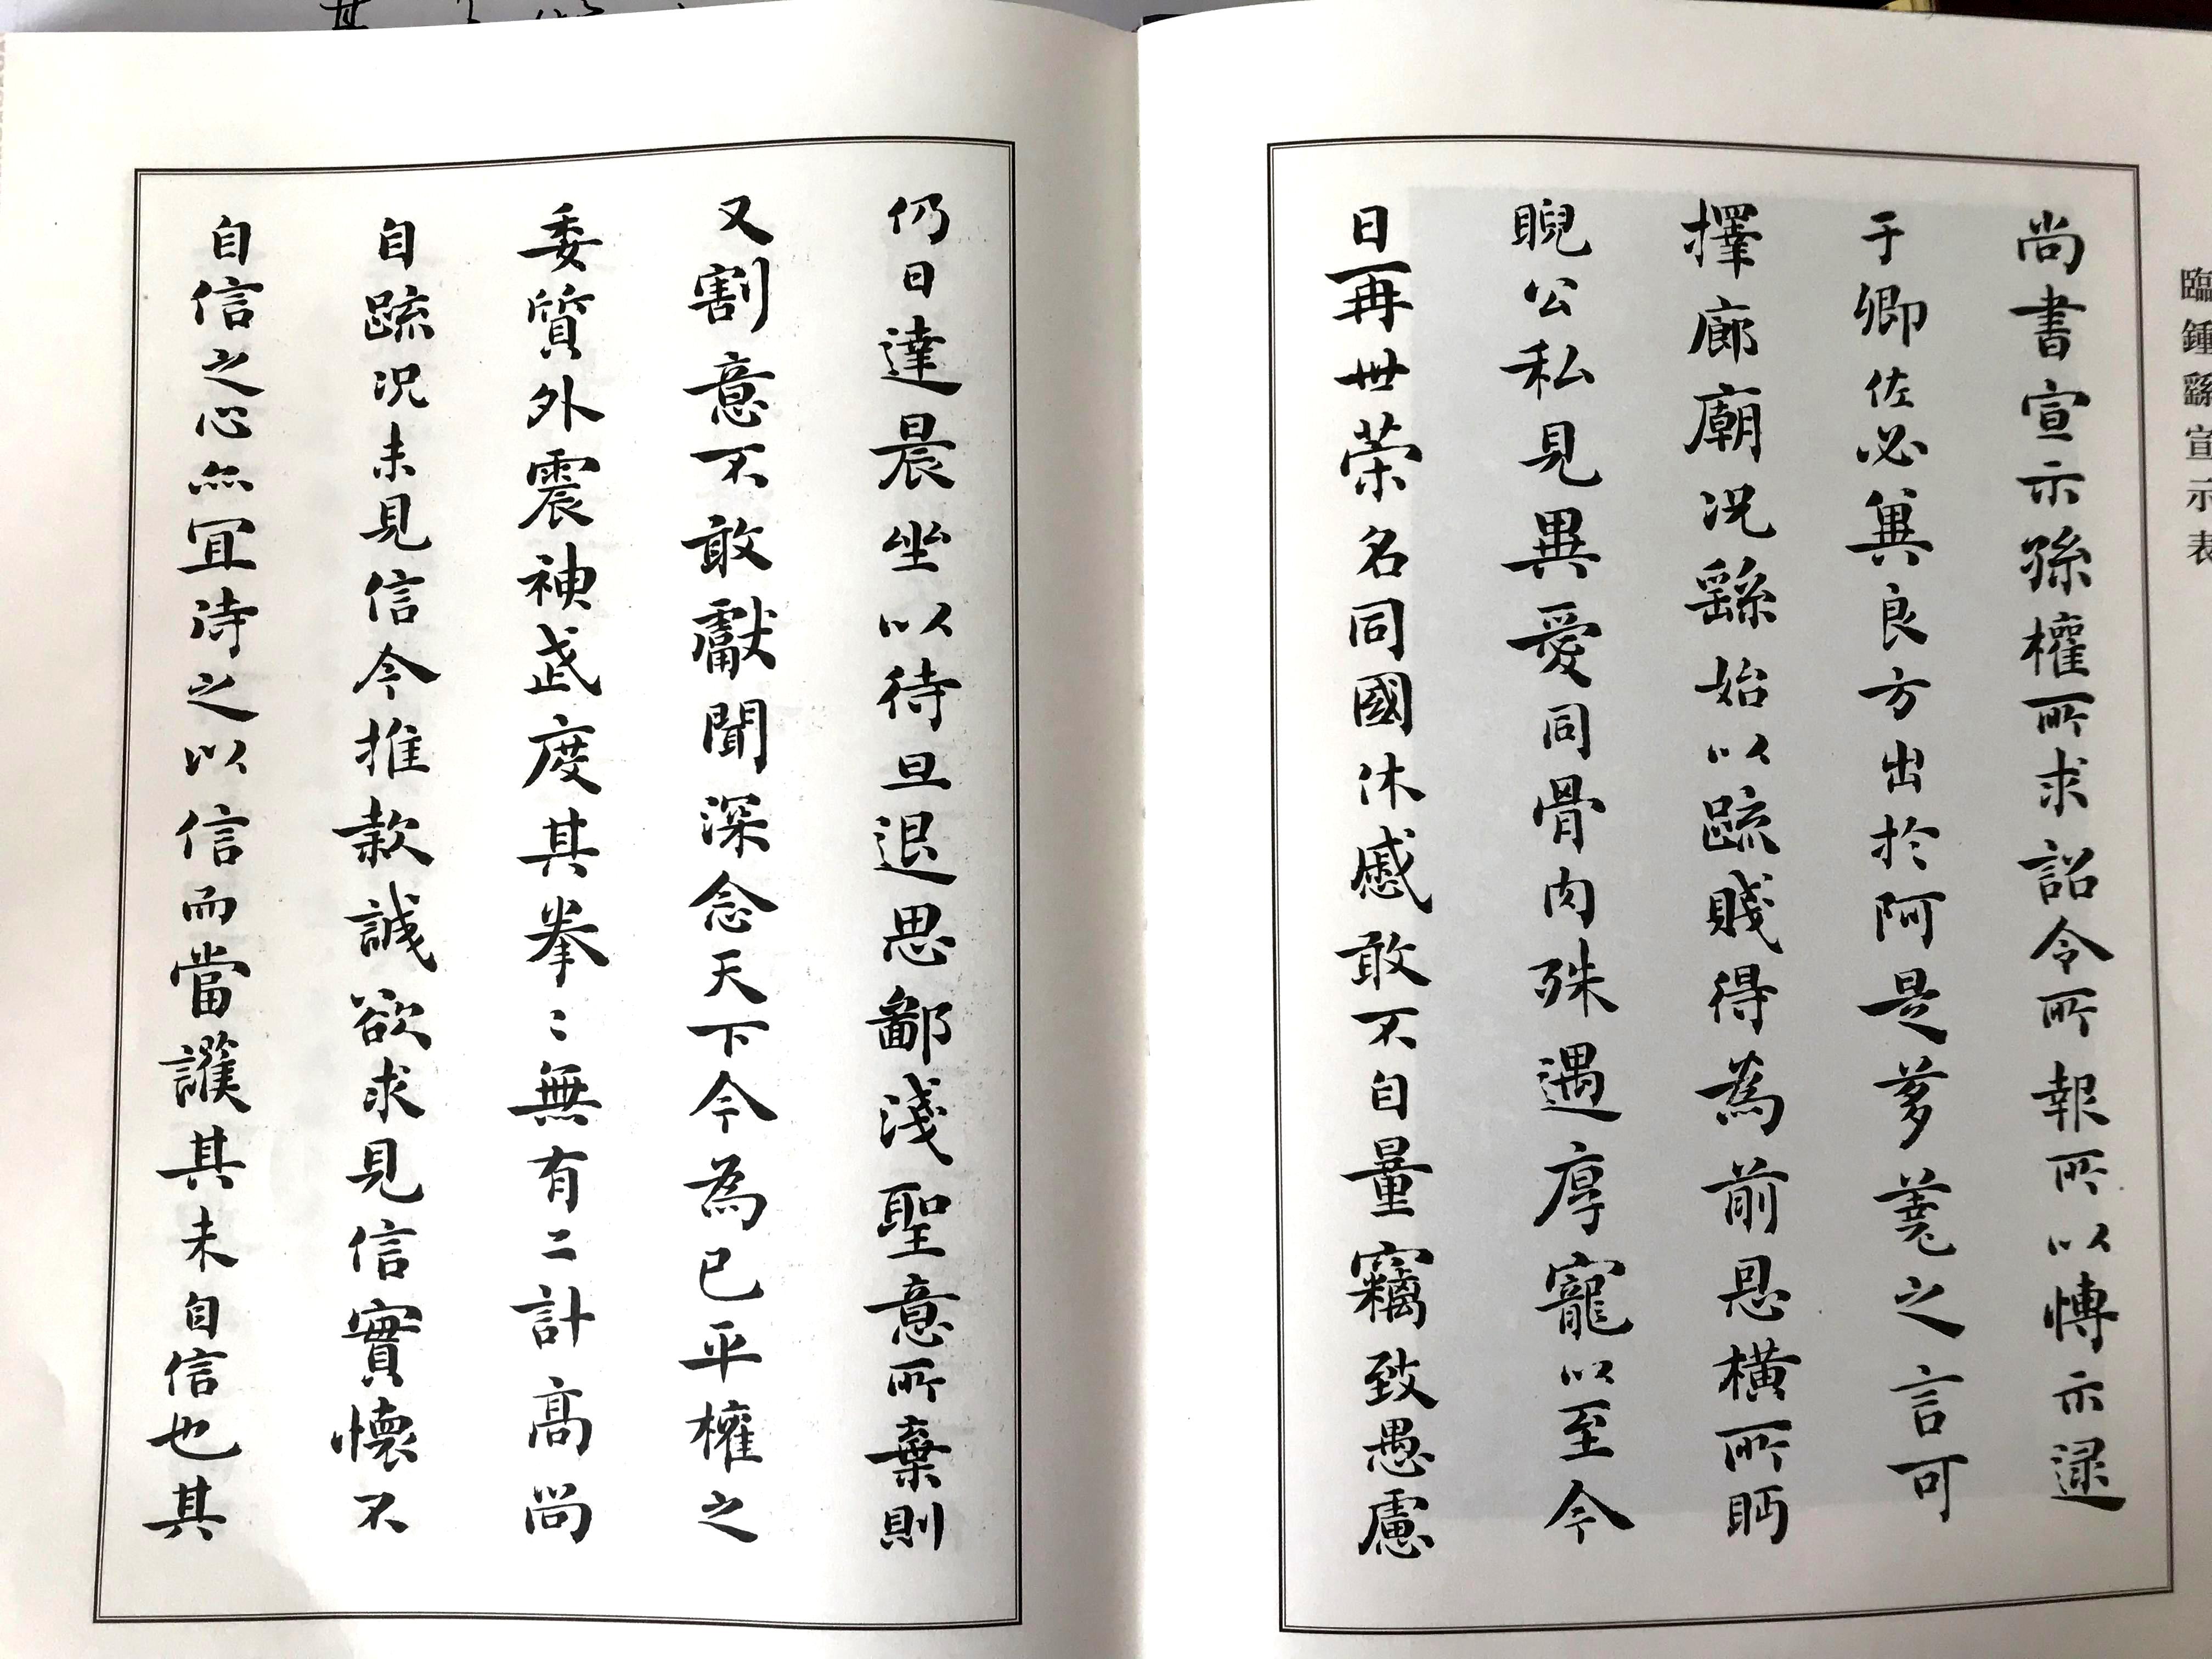 臨鍾繇宣示表
尚書宣示孫權所求詔令所報所以博示逮
于卿佐必冀良方出於阿是芻蕘之言可
擇廊廟況繇始以疏賤得為前恩橫所眄
睨公私見異愛同骨肉殊遇厚寵以至今
日再世榮名同國休慼敢不自量竊致愚慮
仍日達晨坐以待旦退思鄙淺聖意所棄則
又割意不敢獻聞深念天下今為已平權之
委質外震神武度其拳〻無有二計高尚
自疏況未見信今推款誠欲求見信實懷不
自信之心亦宜待之以信而當護其未自信也其